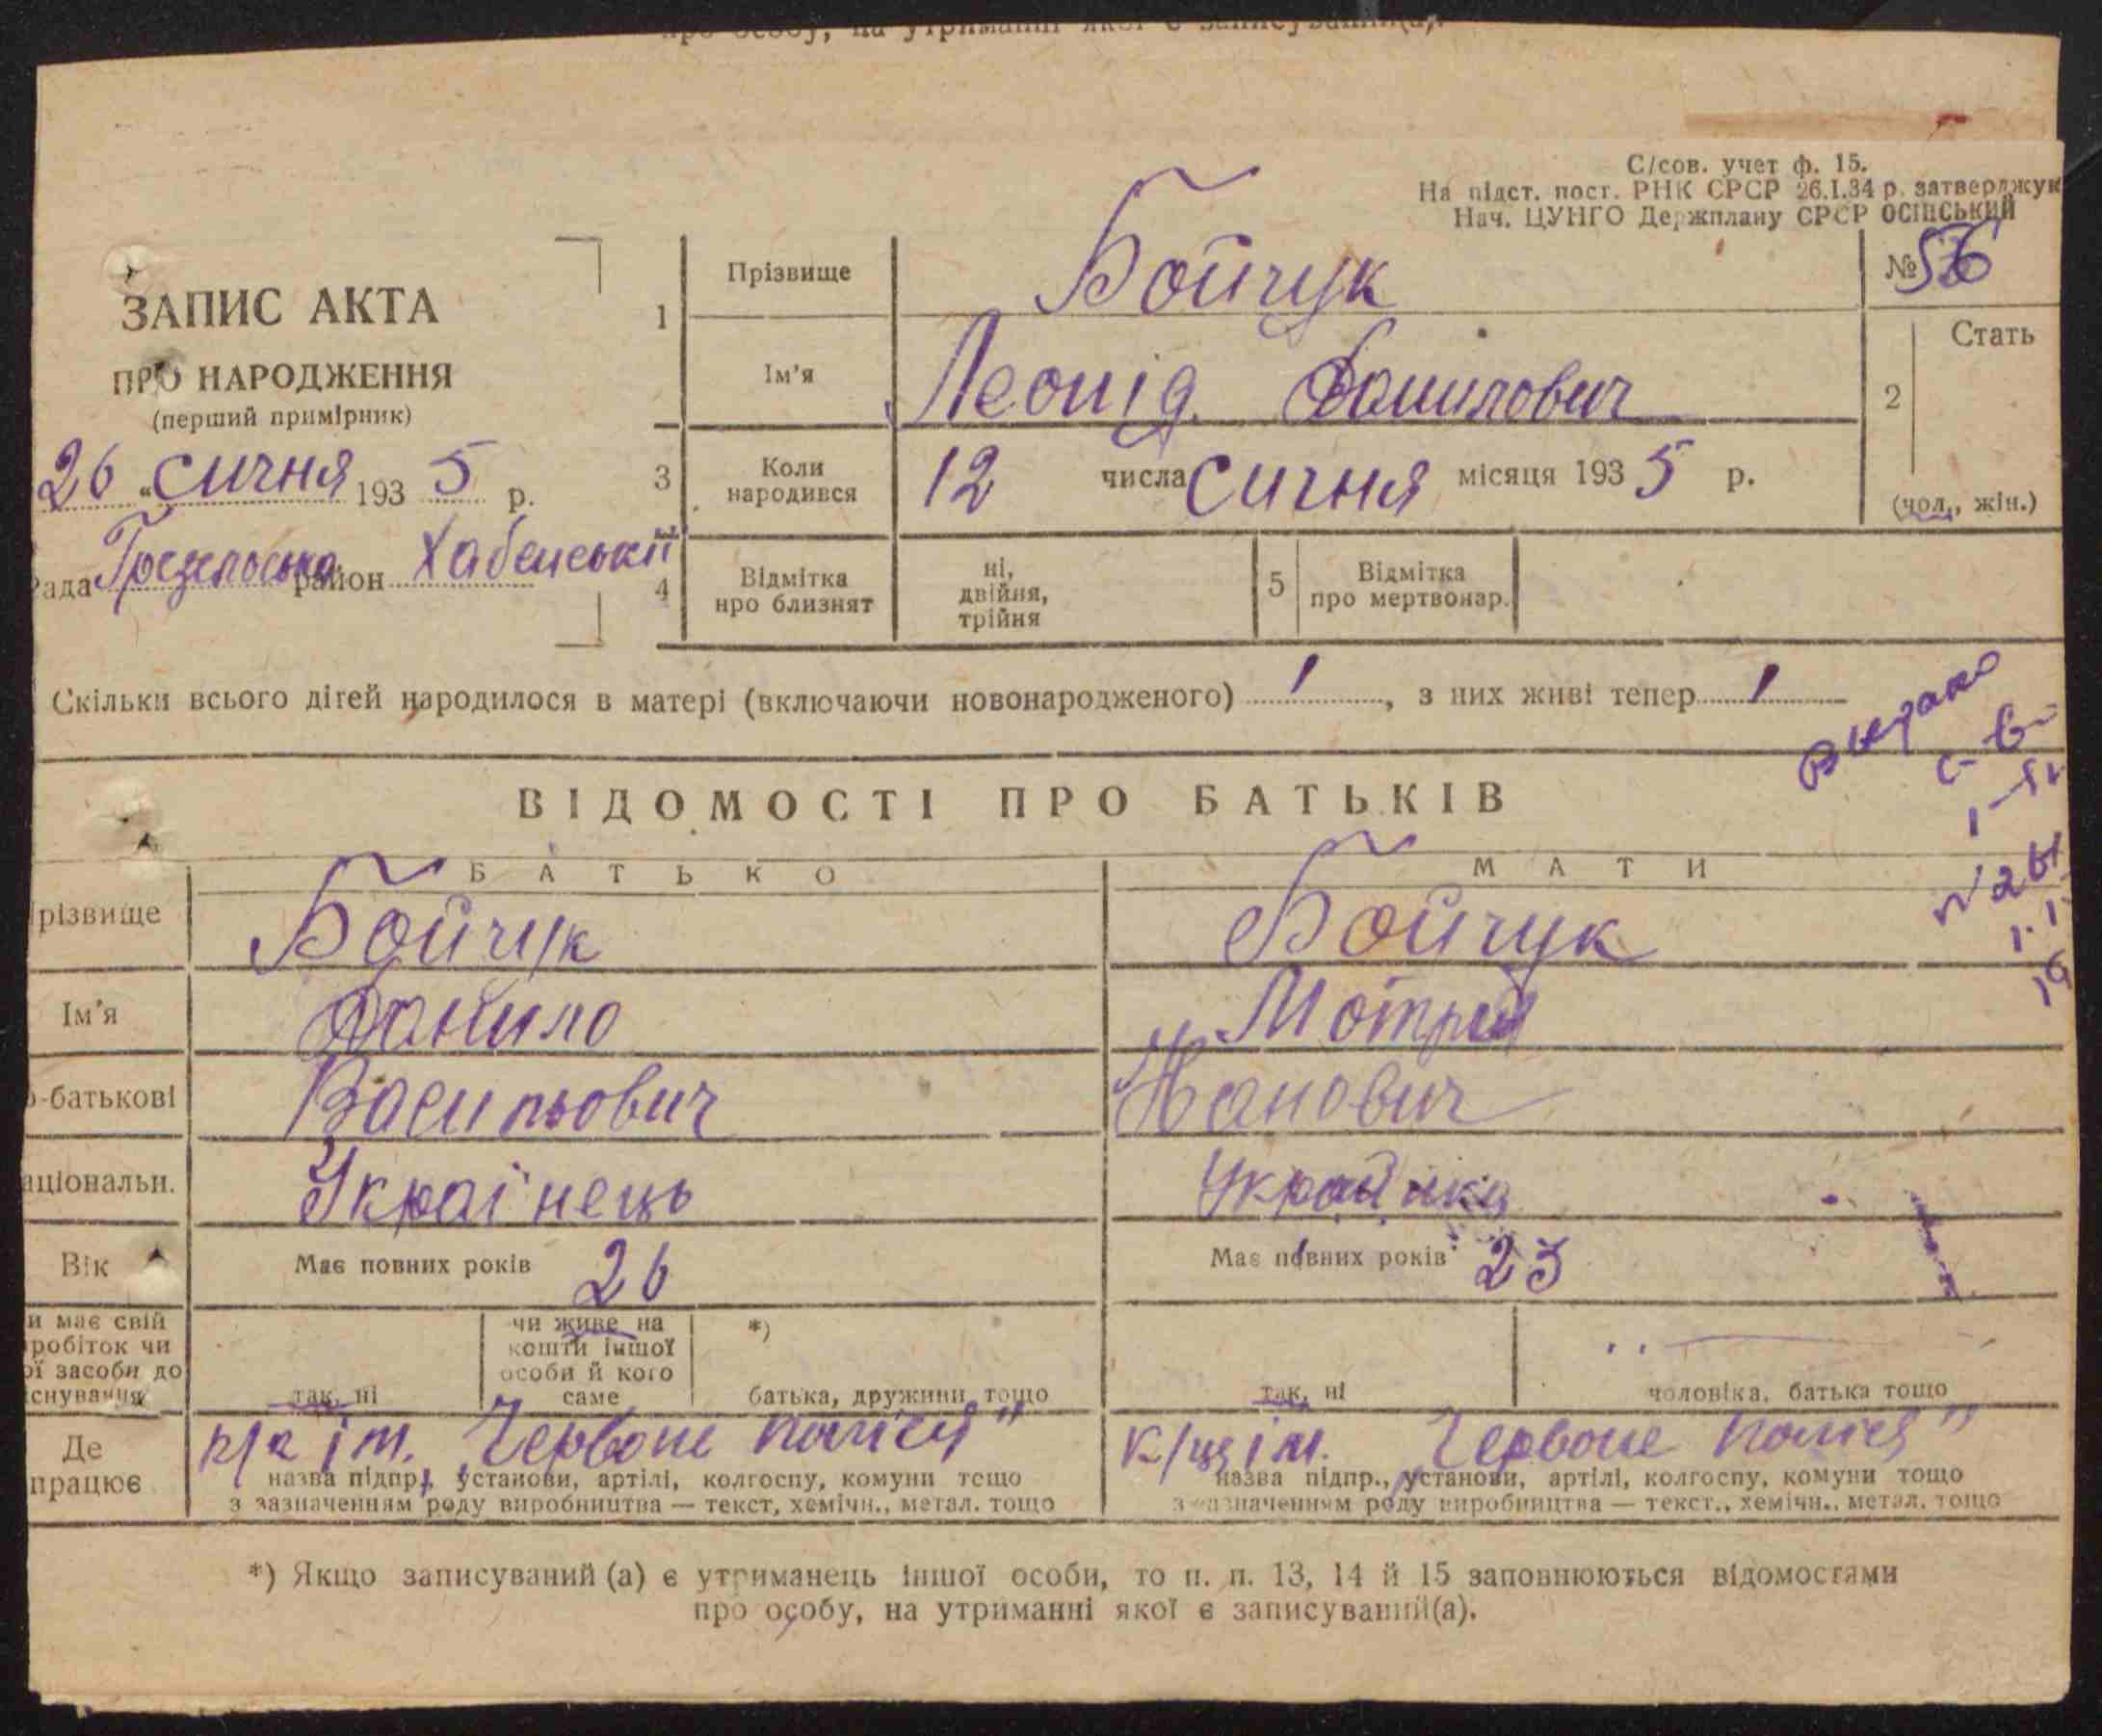 про особу, на утриманні якої є записуваний(а).
С/сов. учет ф. 15.
На підст. пост. РНК СРСР 26.I.34 р. затверджую
Нач. ЦУНГО Держплану СРСР ОСІНСЬКИЙ
ЗАПИС АКТА
ПРО НАРОДЖЕННЯ
(перший примірник)
26 " сичня 193 5 р.
Рада район Хабенський
1 Прізвище Бойчук № 56
Ім'я Леонід Данилович
2 Стать
(чол., жін.)
3 Коли народився 12 числа Сичня місяця 193 5 р.
4 Відмітка про близнят ні, двійня, трійня
5 Відмітка про мертвонар.
Скільки всього дітей народилося в матері (включаючи новонародженого) 1, з них живі тепер 1
ВІДОМОСТІ ПРО БАТЬКІВ
БАТЬКО МАТИ
різвище Бойчук Бойчук
Ім'я Данило Мотря
о-батькові Васильович Іванович
аціональн. Украінець Українка
Вік Має повних років 26 Має повних років 23
и має свій
робіток чи
ої засоби до
снування
так, ні
чи живе на
кошти іншої
особи й кого
саме
*)
батька, дружини тощо
так, ні
чоловіка, батька тощо
Де
працює
ім. „Червоне полісся"
назва підпр., установи, артілі, колгоспу, комуни тощо
з зазначенням роду виробництва — текст, хемічн., метал. тощо
ім. Червоне полісся"
назва підпр., установи, артілі, колгоспу, комуни тощо
з зазначенням роду виробництва — текст., хемічн., метал. тощо
*) Якщо записуваний (а) є утриманець іншої особи, то п. п. 13, 14 й 15 заповнюються відомостями
про особу, на утриманні якої є записуваний(а).